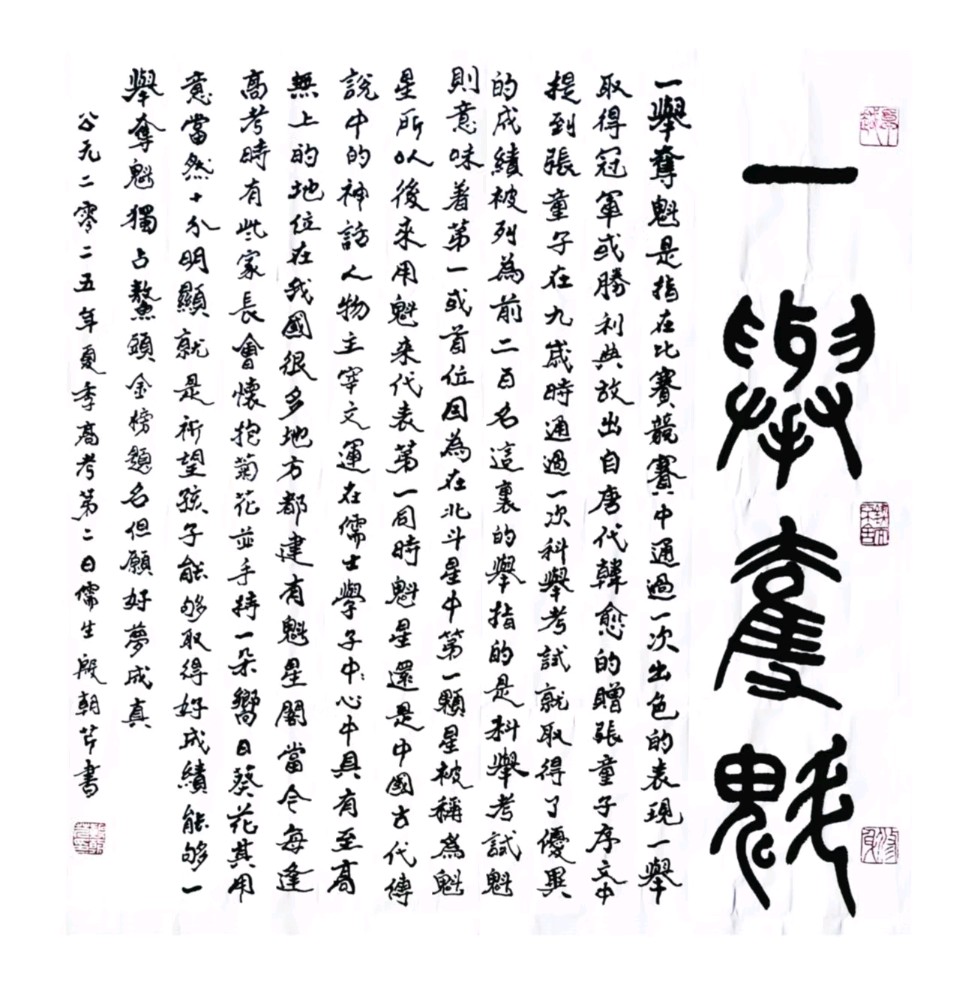 一舉奪魁
一舉奪魁是指在比賽競賽中通過一次出色的表現一舉
取得冠軍或勝利典故出自唐代韓愈的贈張童子序文中
提到張童子在九歲時通過一次科舉考試就取得了優異
的成績被列為前二百名這裏的舉指的是科舉考試魁
則意味着第一或首位因為在北斗星中第一顆星被稱為魁
星所以後來用魁來代表第一同時魁星還是中國古代傳
說中的神訪人物主宰文運在儒士學子中心中具有至高
無上的地位在我國很多地方都建有魁星閣當今每逢
高考時有些家長會懷抱菊花並手持一朵嚮日葵花其用
意當然十分明顯就是祈望孩子能够取得好成績能够一
舉奪魁獨占鰲頭金榜題名但願好夢成真
公元二零二五年夏季高考第二日儒生殷朝芹書